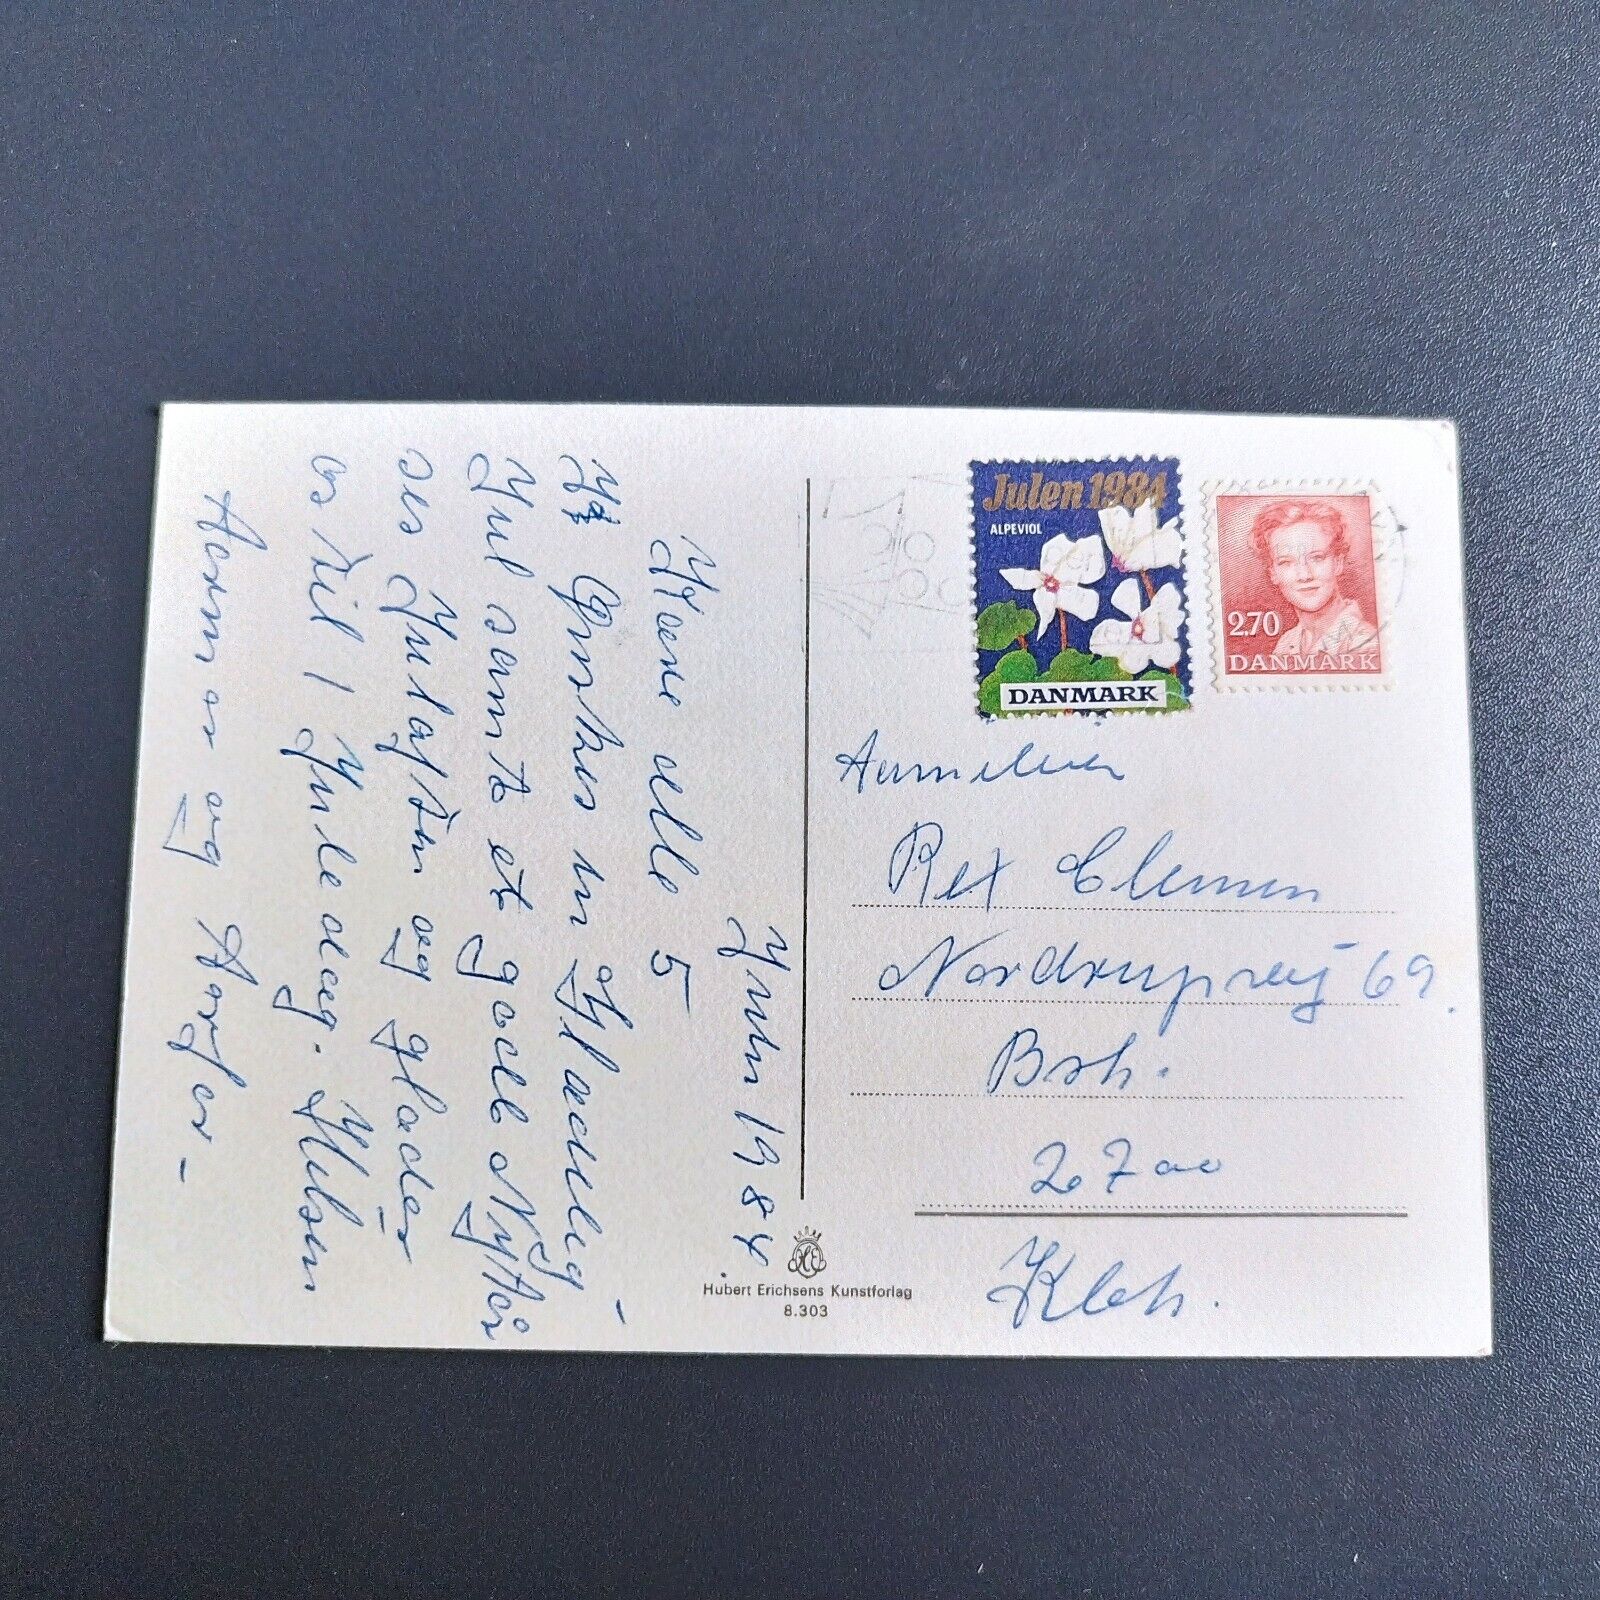 Julen 1984
ALPEVIOL
DANMARK
2.70
DANMARK
Julen 1984.
Kære alle 5
Ønskes en Glædelig
Jul samt et godt Nytår
ses Juleaften og glæder
os til 1 Juledag. Hilsen
og
Rex Clemen
Nordrupvej 69.
Bsh.
2700
Kbh.
Hubert Erichsens Kunstforlag
8.303